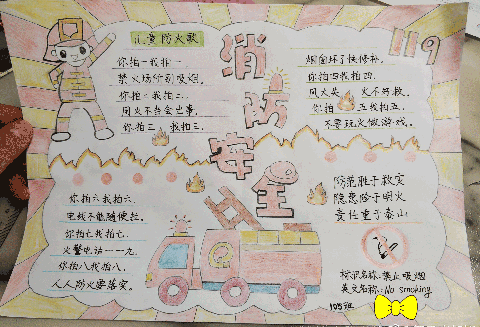 儿童防火歌
你拍一我拍一.
禁火场所别吸烟.
你拍二我拍二.
用火不当会出事.
你拍三 我拍三.
消防安全
119
烟囱坏了快修补.
你拍四我拍四.
风大
火不好救.
你拍 五我拍五.
不要玩火做游戏.
你拍六我拍六.
电线不能随便拉.
你拍七我拍七.
火警电话一一九.
你拍八我拍八.
人人防火要落实.
防范胜于救灾
隐患险于明火
责任重于泰山
标示名称:禁止吸烟
英文名称:No smoking
105班